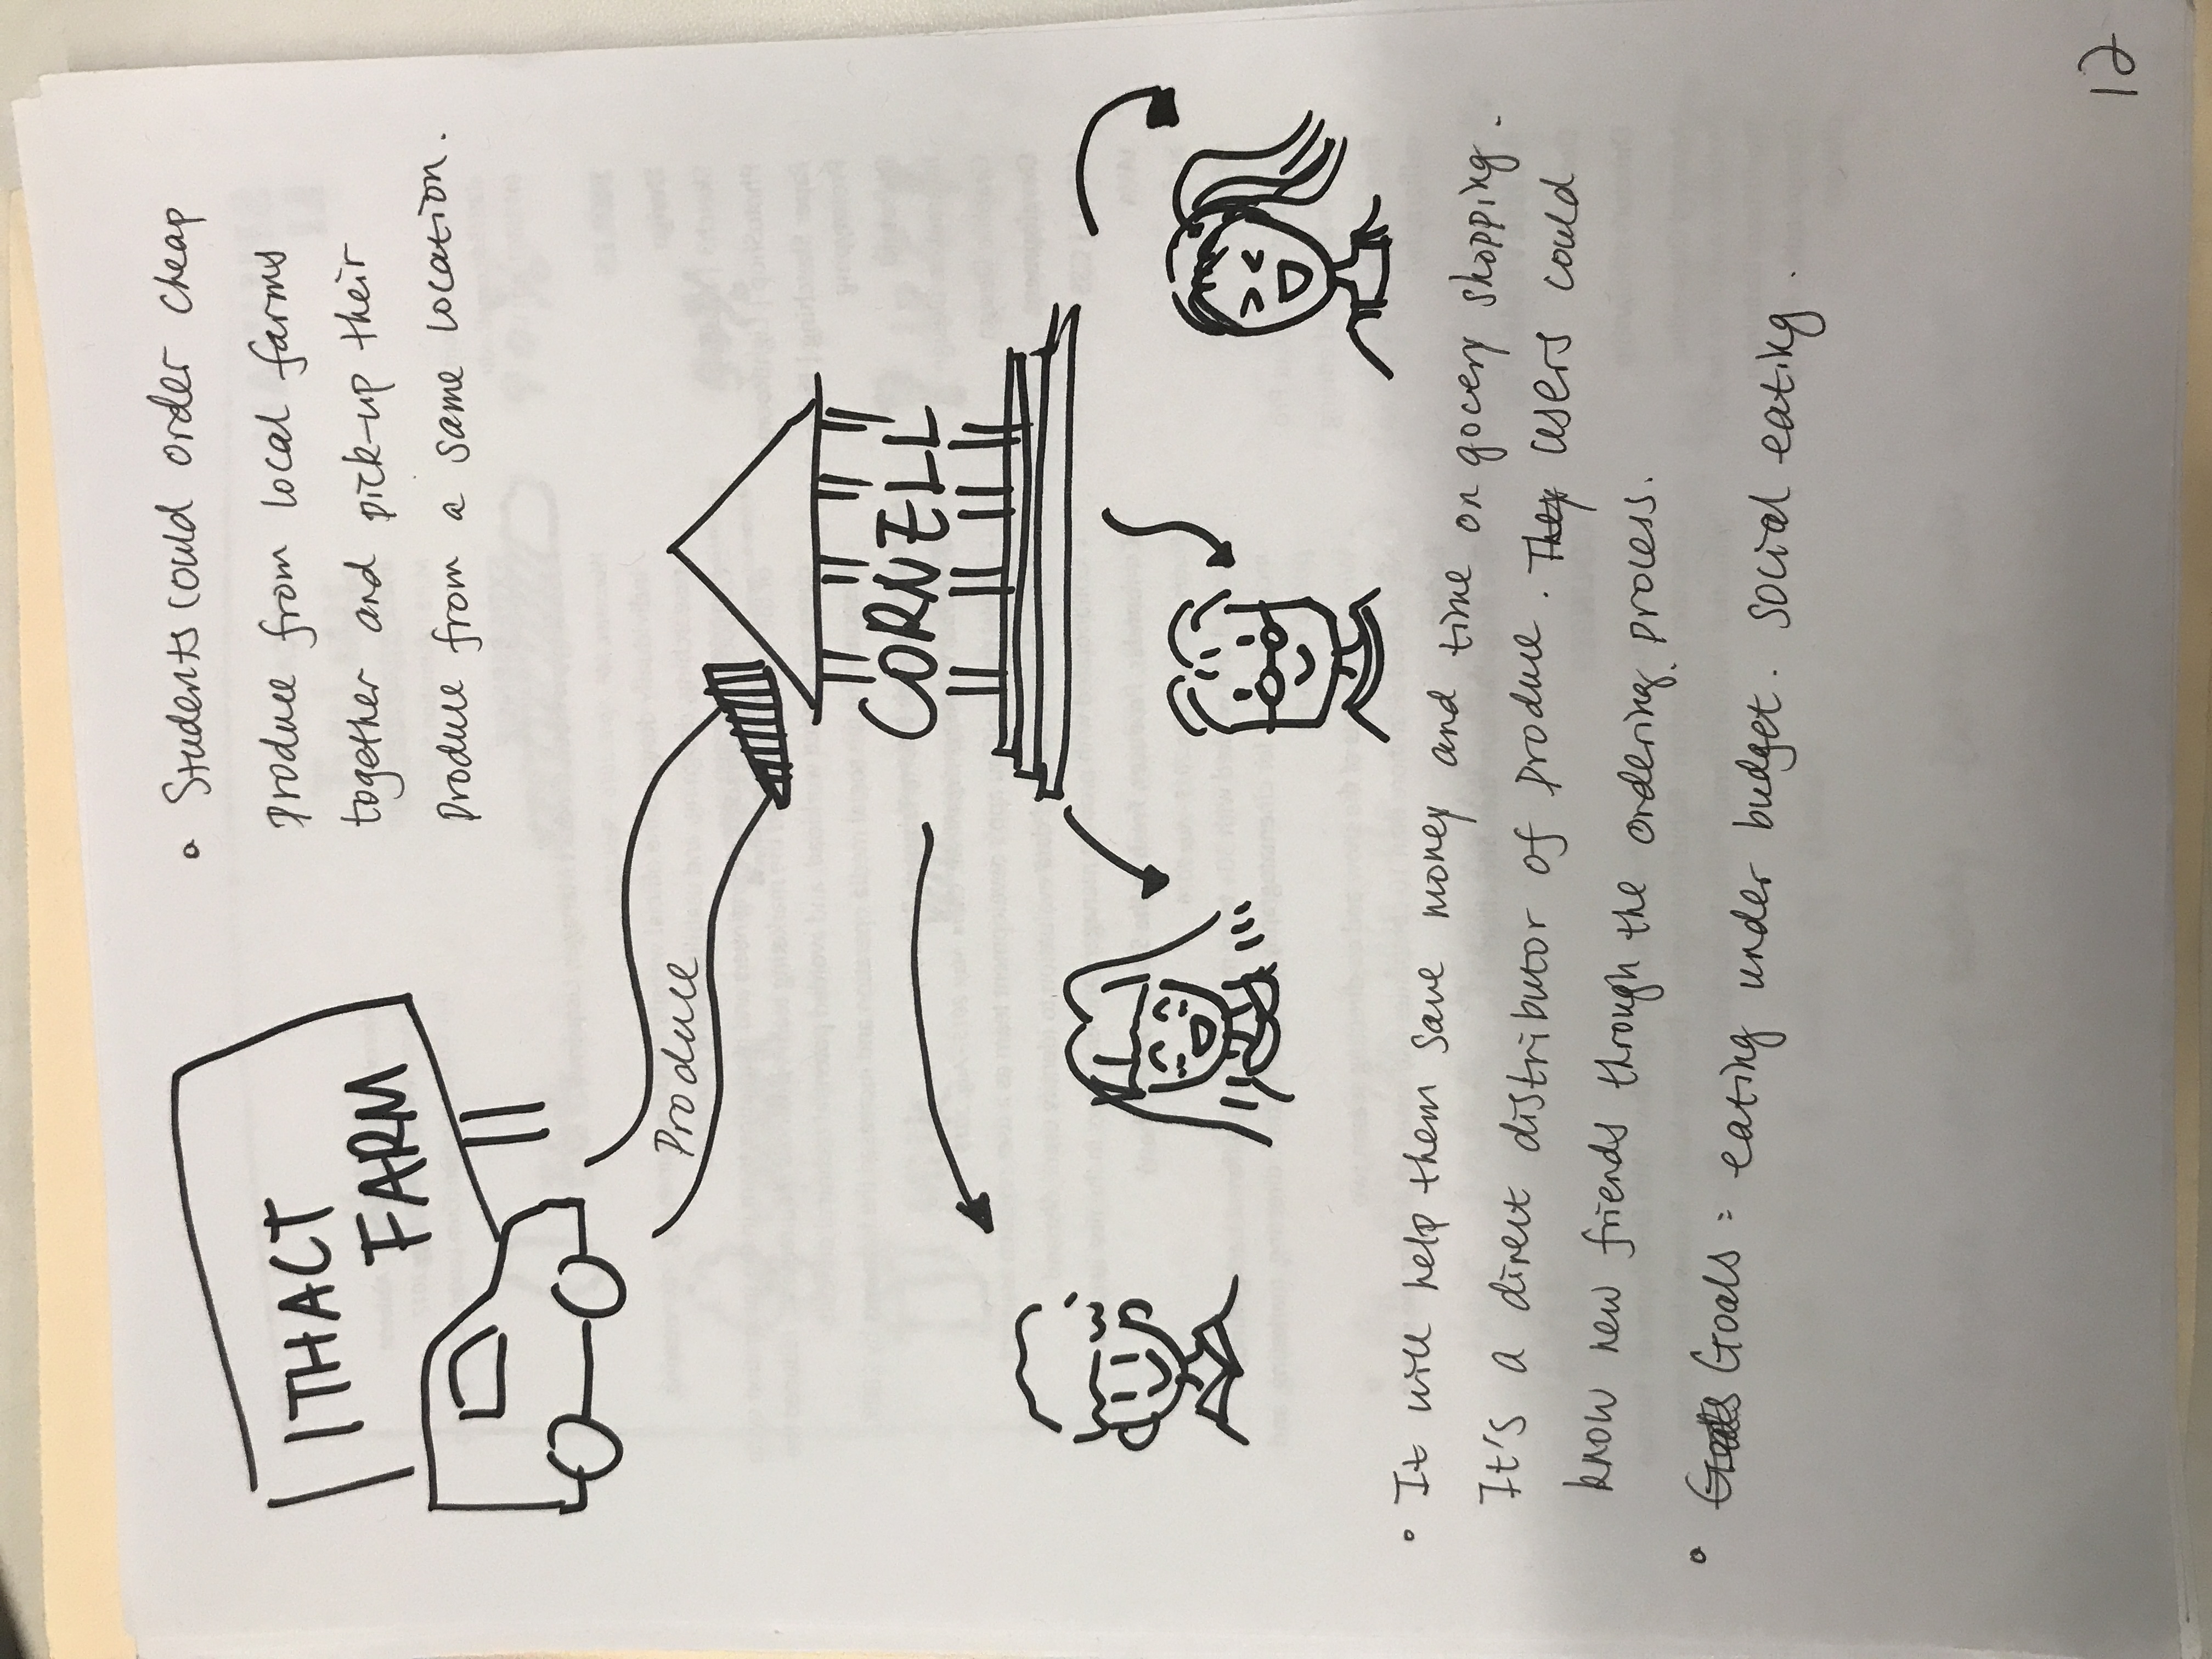 ITHACT
FARM
Students could order cheap
produce from local farms
together and pick-up their
produce from a same location.
Produce
CORNELL
It will help them save money and time on gocery shopping.
It's a direct distributor of produce. They users could
know new friends through the ordering process.
Goals Goals: eating under budget. social eating.
12